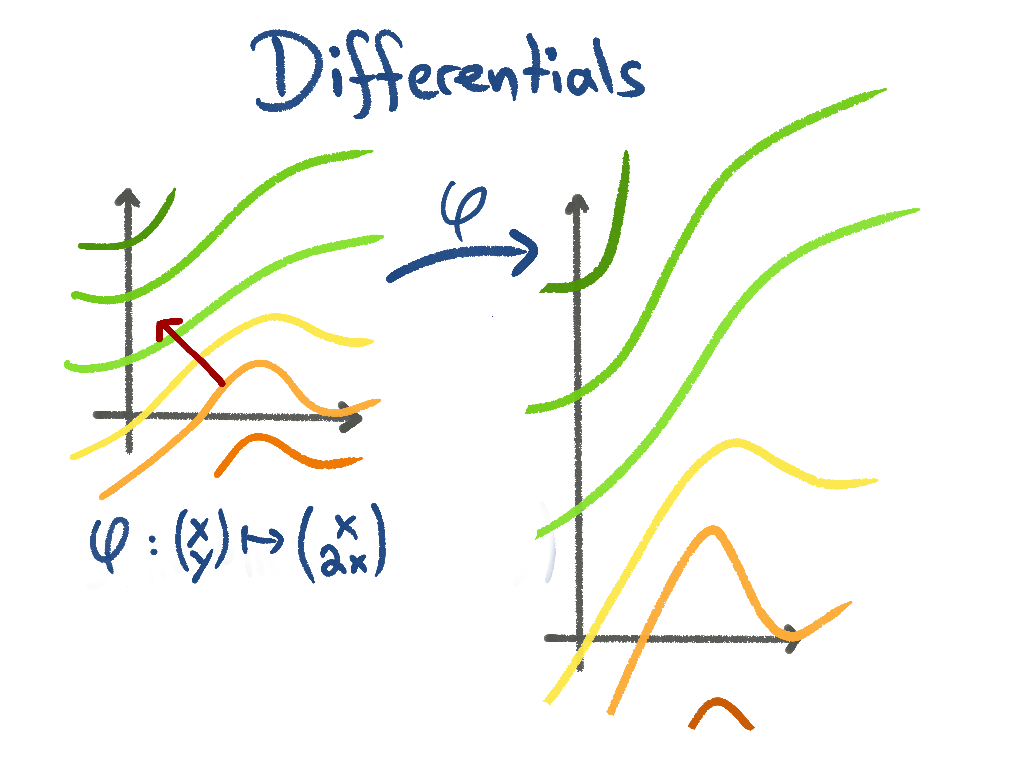 Differentials
φ
φ : (x y) ↦ (x 2x)